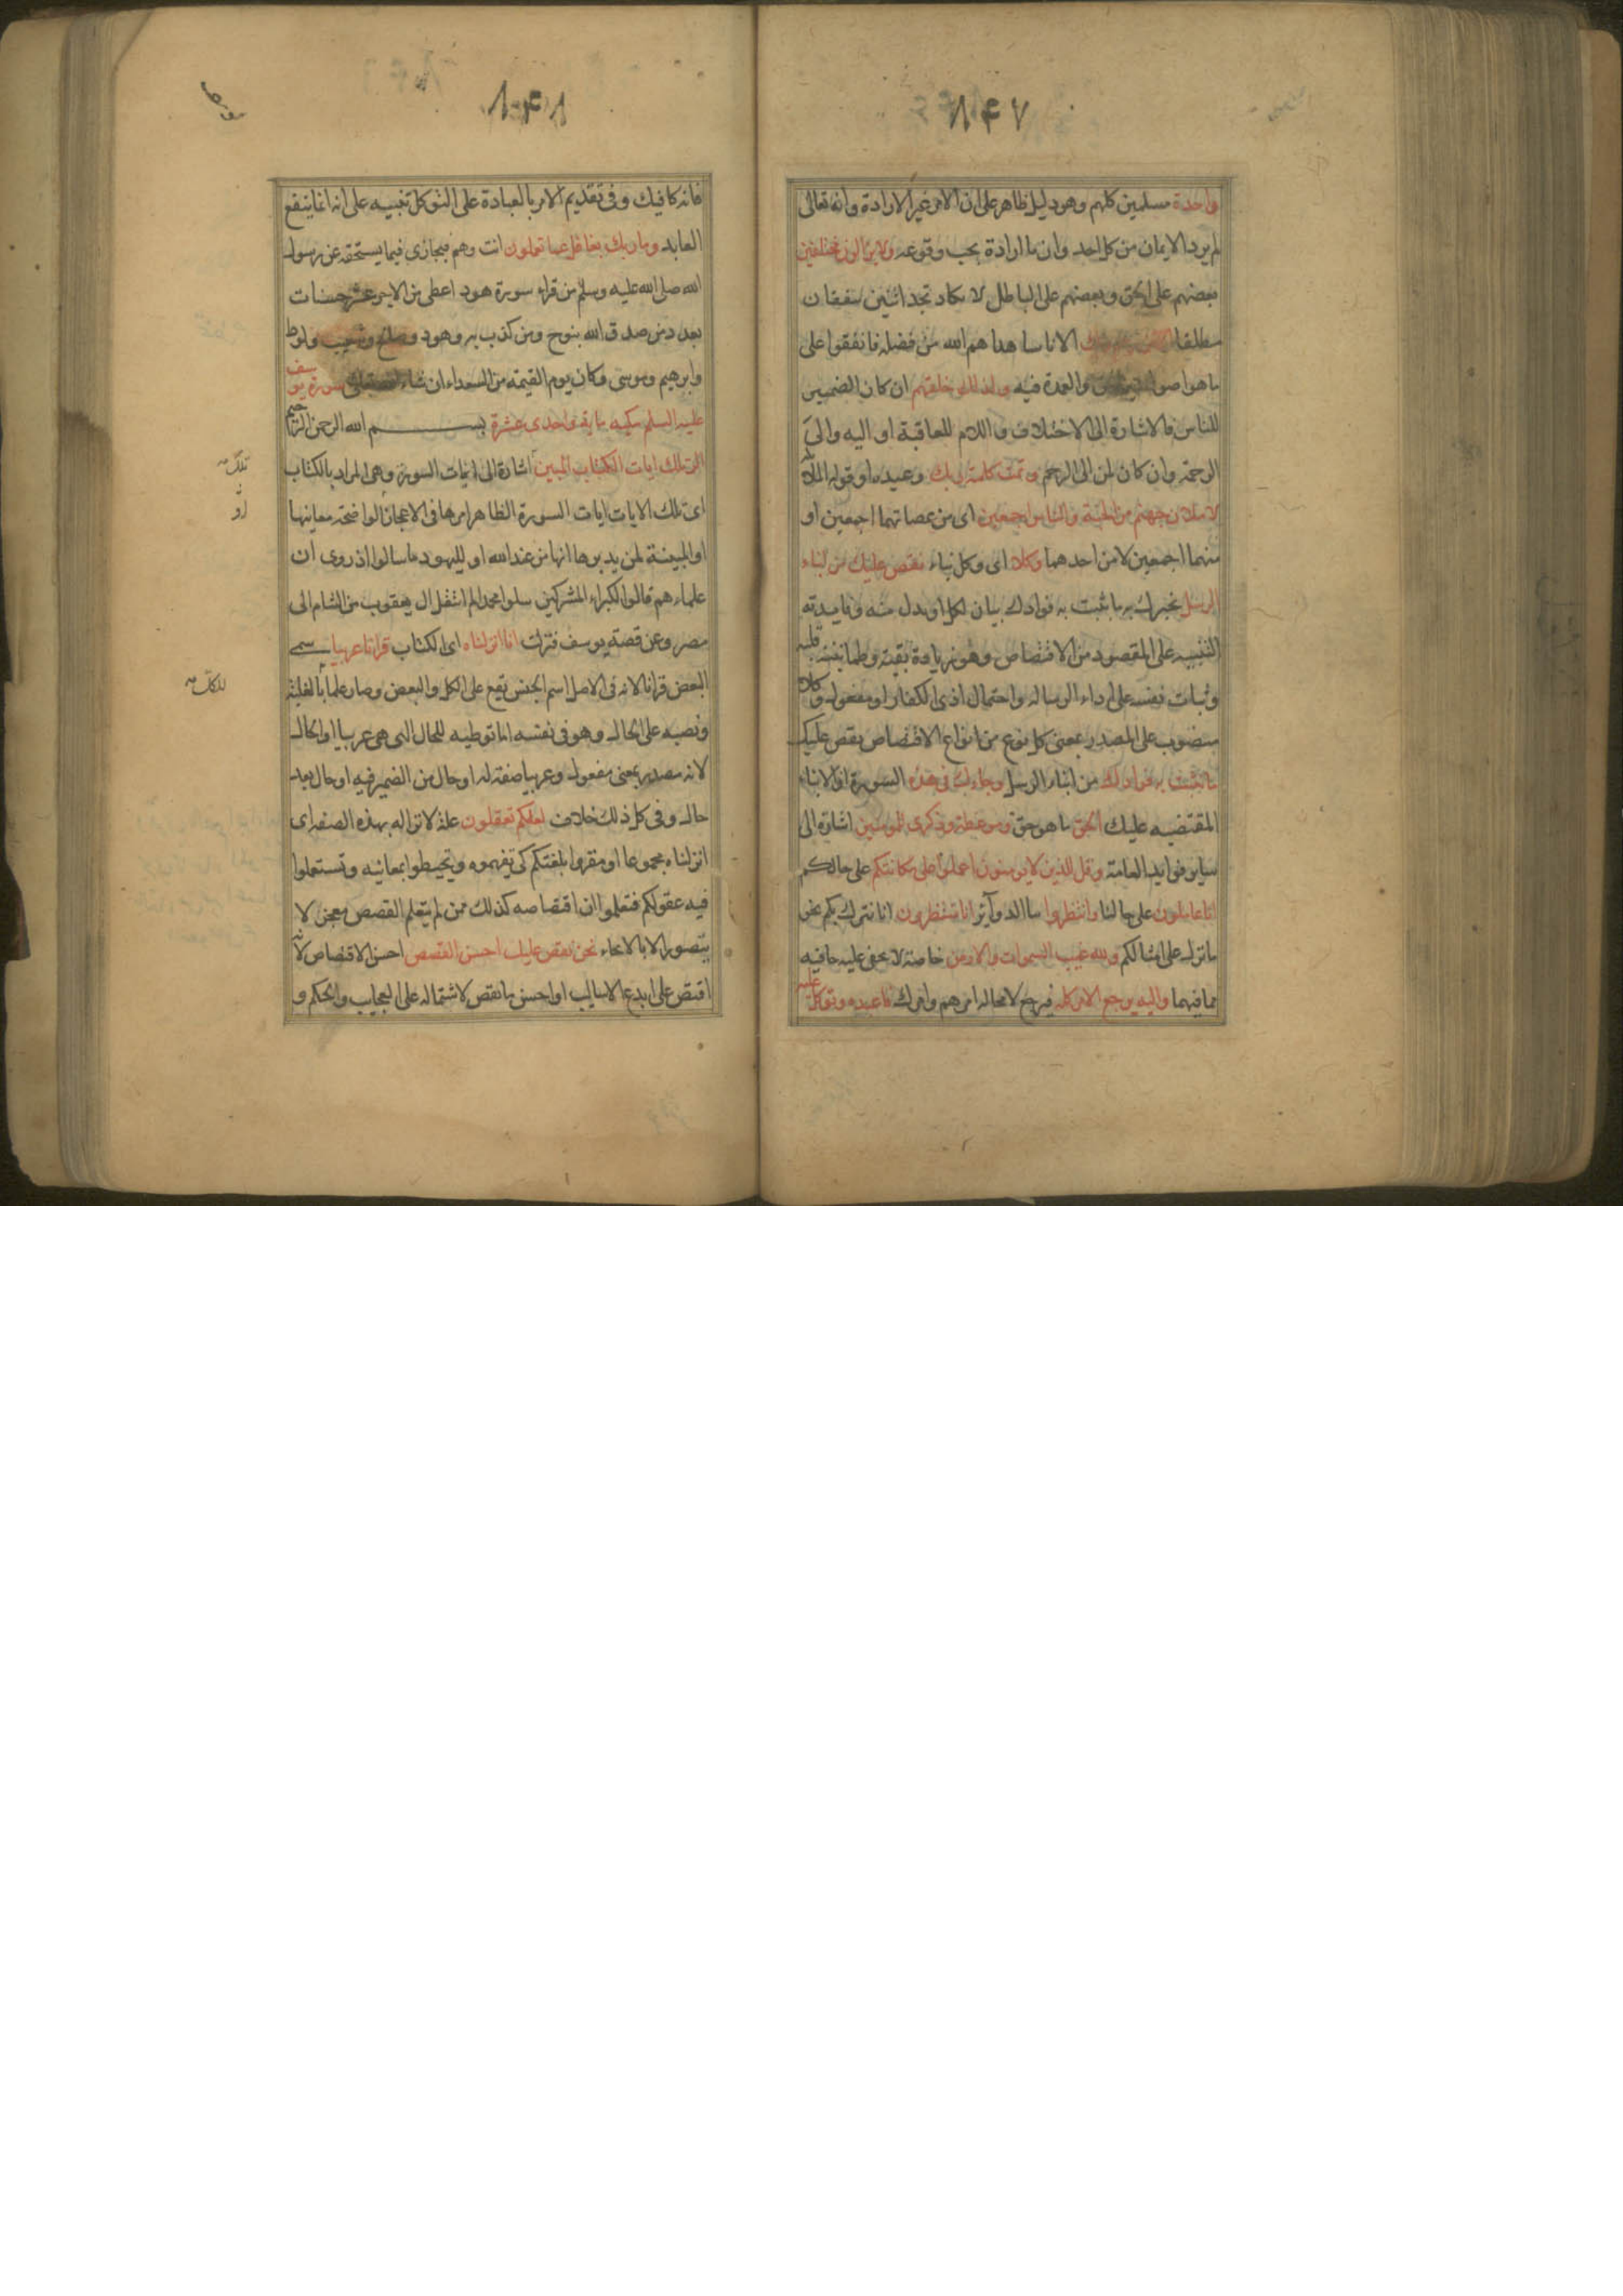 ٨٤٧
واحدة مسلمين كلهم وهو دليل ظاهر على ان الامر غير الارادة وانه تعالى
لم يرد الايمان من كل احد وان ما اراده يجب وقوعه ولا يزالون مختلفين
بعضهم على الحق وبعضهم على الباطل لا تكاد تجد اثنين يتفقان
مطلقا الا من رحم ربك الا ناسا هداهم الله من فضله فاتفقوا على
ما هو اصول والعمدة فيه ولذلك خلقهم ان كان الضمير
للناس فالاشارة الى الاختلاف واللام للعاقبة او اليه والى
الرحمة وان كان لمن الى الرحم وتمت كلمة ربك وعيده او قوله الملائكة
لاملان جهنم من الجنة والناس اجمعين اى من عصاتهما اجمعين او
منهما اجمعين لا من احدهما وكلا اى وكل نباء نقص عليك من انباء
الرسل نخبرك به ما نثبت به فوادك بيان لكلا او بدل منه وفايدته
التنبيه على المقصود من الاقتصاص وهو زيادة يقينه وطمانينة قلبه
وثبات نفسه على اداء الرسالة واحتمال اذى الكفار او مفعول وكلا
منصوب على المصدر بمعنى كل نوع من انواع الاقتصاص نقص عليك
ما نثبت به فوادك من انباء الرسل وجاءك فى هذه السورة او الانباء
المقتضيه عليك الحق ما هو حق وموعظة وذكرى للمومنين اشارة الى
ساير فوايده العامة وقل للذين لا يومنون اعملوا على مكانتكم على حالكم
انا عاملون على حالنا وانتظروا بنا الدوآير انا منتظرون ان ينزل بكم نحو
ما نزل على امثالكم ولله غيب السموات والارض خاصة لا يخفى عليه خافيه
مما فيهما واليه يرجع الامر كله فيرجع لا محالة امرهم وامرك فاعبده وتوكل عليه
٨٤٨
فانه كافيك وفى تقديم الامر بالعبادة على التوكل تنبيه على انه انما ينفع
العابد وما ربك بغافل عما تعملون انت وهم فيجازى فيما يستحقه عن رسول
الله صلى الله عليه وسلم من قراء سورة هود اعطى من الاجر عشر حسنات
بعدد من صدق الله بنوح ومن كذب به وهود وصالح وشعيب ولوط
وابرهيم وموسى وكان يوم القيمة من السعداء ان شاء الله تعالى سورة يوسف
عليه السلم مكيه ماية واحدى عشرة بسم الله الرحمن الرحيم
الر تلك ايات الكتاب المبين اشارة الى ايات السورة وهى المراد بالكتاب
اى تلك الايات ايات السورة الظاهر امرها فى الاعجاز الواضحة معانيها
او المبينة لمن يدبرها انها من عند الله او لليهود ما سالوا اذ روى ان
علماءهم قالوا لكبراء المشركين سلوا محمدا لم انتقل ال يعقوب من الشام الى
مصر وعن قصة يوسف فنزلت انا انزلناه اى الكتاب قرانا عربيا سمى
البعض قرانا لانه فى الاصل اسم الجنس يقع على الكل والبعض وصار علما بالغلبة
ونصبه على الحال وهو فى نفسه اما توطيه للحال التى هى عربيا او الحال
لانه مصدر بمعنى مفعول وعربيا صفة له او حال من الضمير فيه او حال بعد
حال وفى كل ذلك خلاف لعلكم تعقلون علة لانزاله بهذه الصفة اى
انزلناه مجموعا او مقروا بلغتكم كى تفهموه وتحيطوا بمعانيه وتستعملوا
فيه عقولكم فتعلموا ان اقتصاصه كذلك ممن لم يتعلم القصص معجز لا
يتصور الا بالايحاء نحن نقص عليك احسن القصص احسن الاقتصاص لانه
اقتص على ابدع الاساليب او احسن ما نقص لاشتماله على العجايب والحكم و